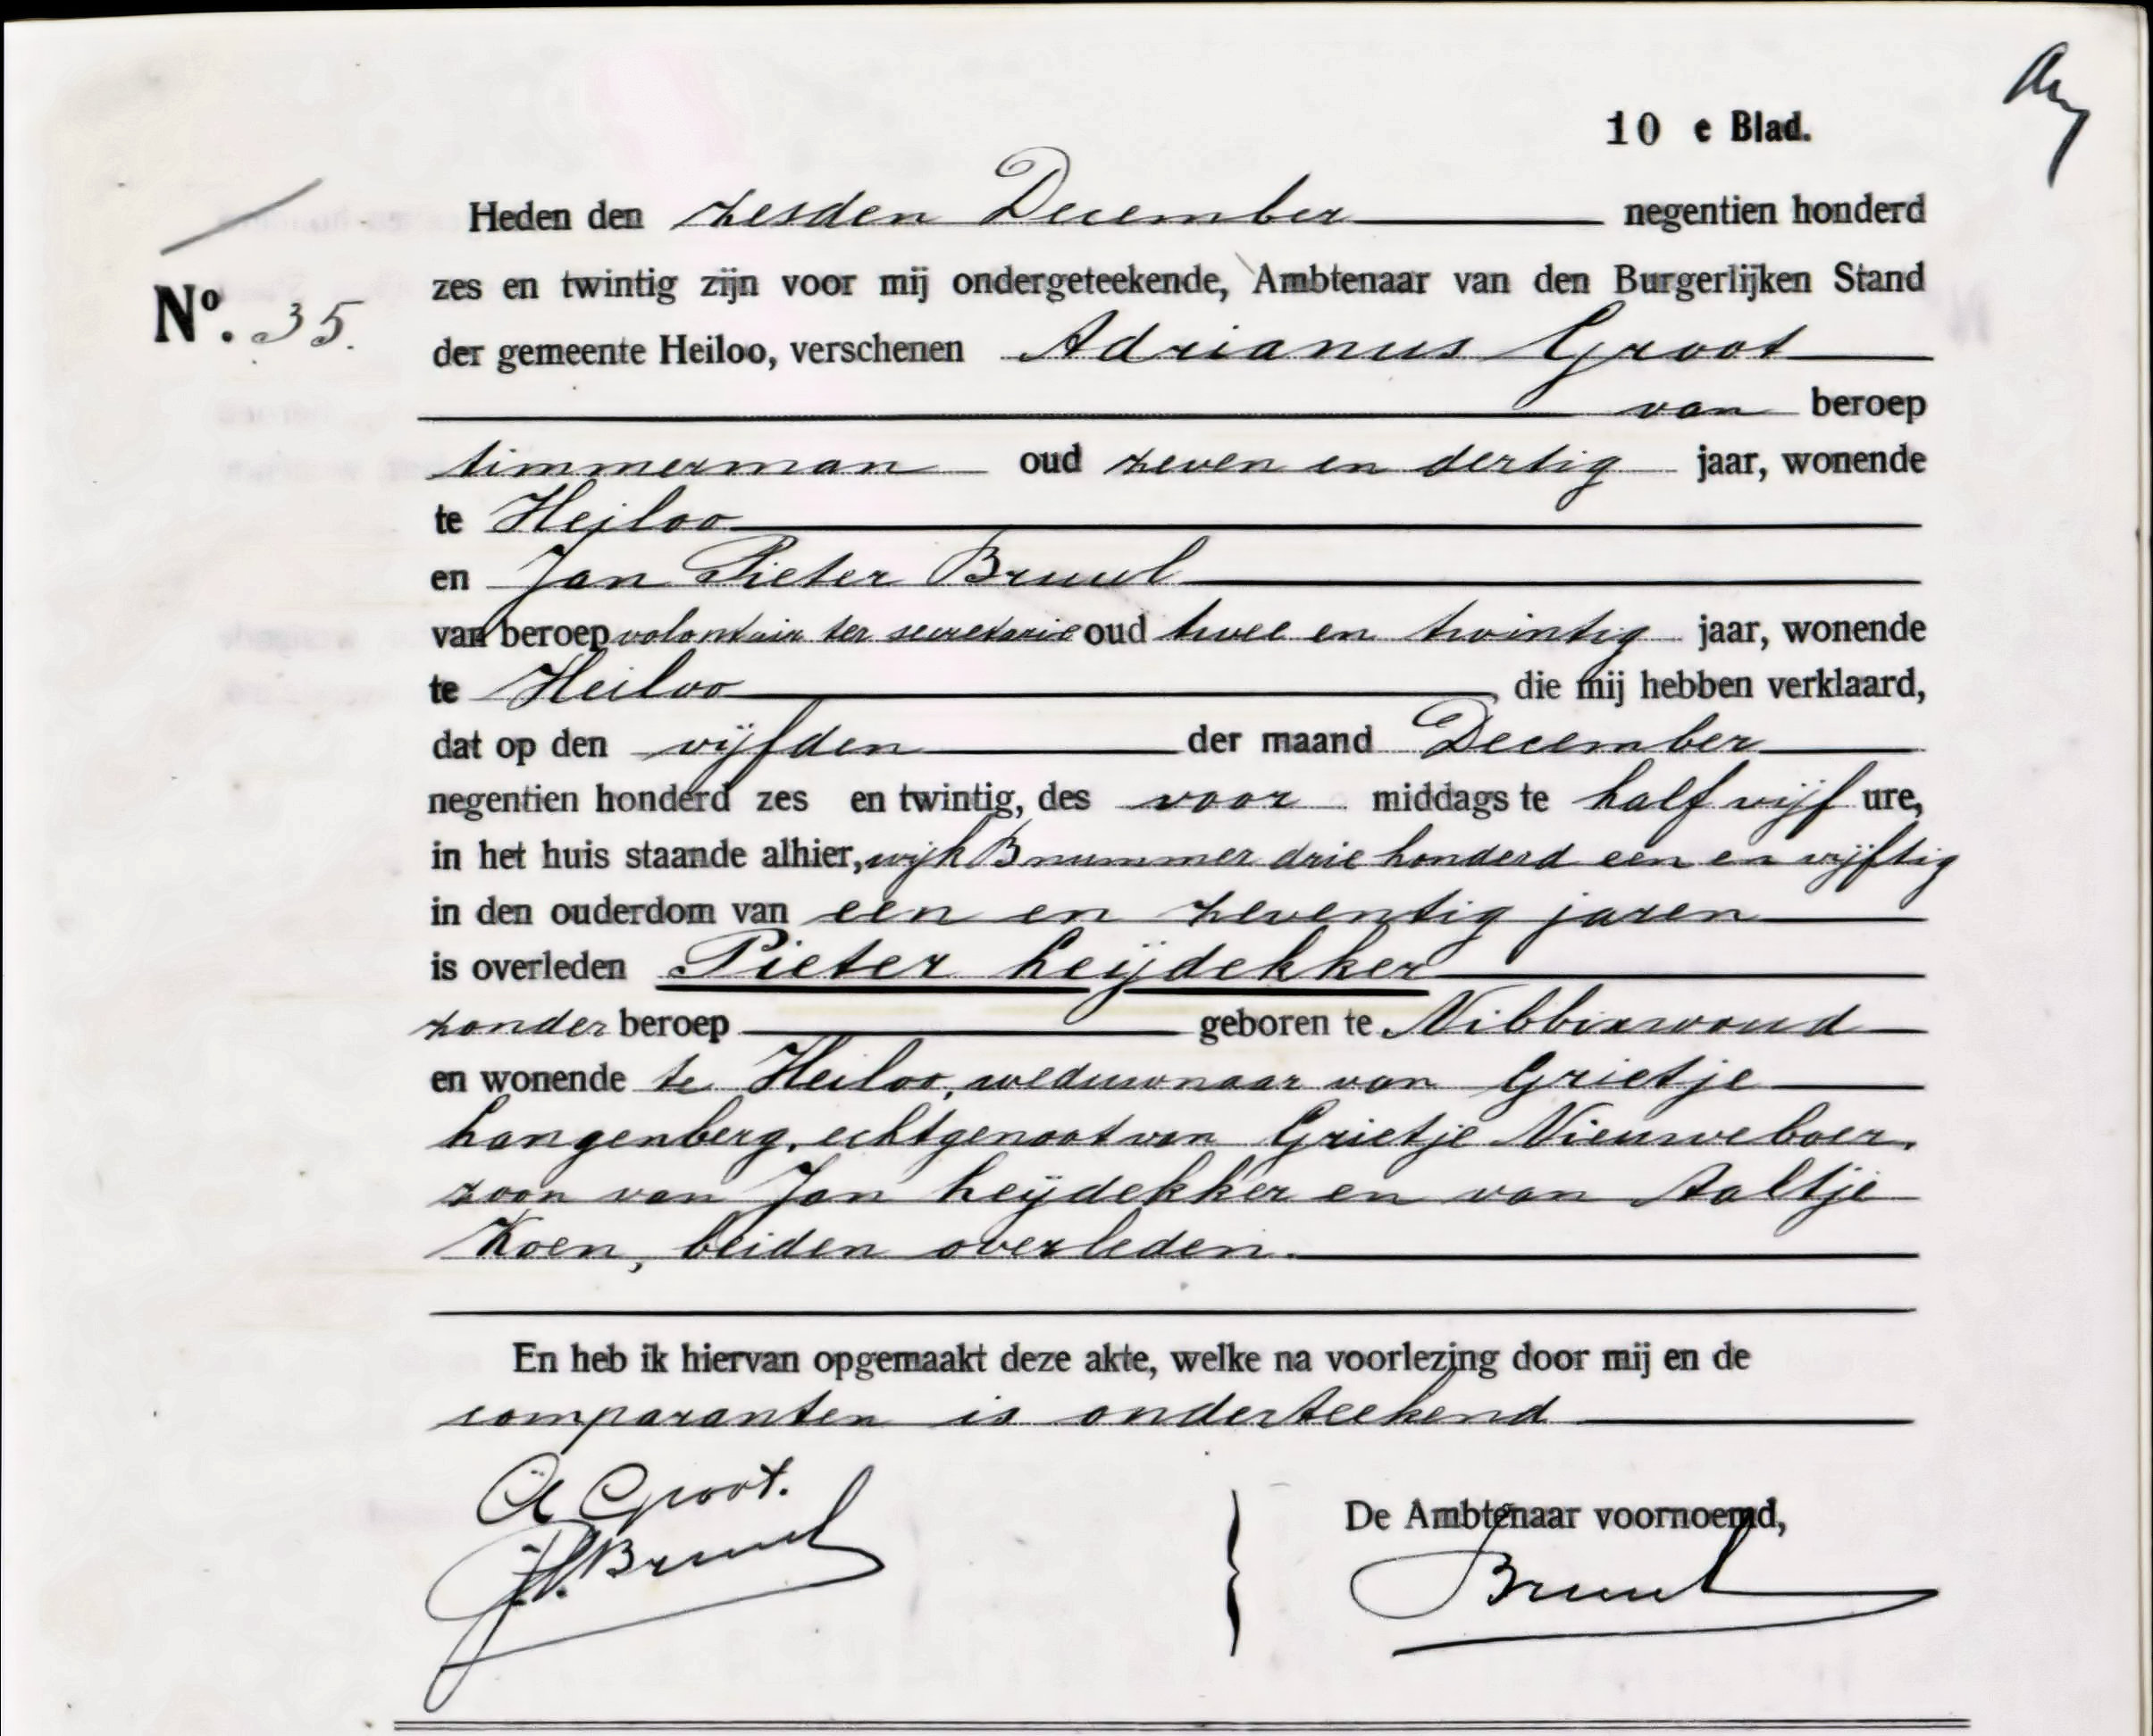 10 e Blad.
Heden den zesden December negentien honderd
zes en twintig zijn voor mij ondergeteekende, Ambtenaar van den Burgerlijken Stand
No. 35.
der gemeente Heiloo, verschenen Adrianus Groot
van beroep
timmerman oud zeven en dertig jaar, wonende
te Heiloo
en Jan Pieter Bruul
van beroep volontair ter secretarie oud twee en twintig jaar, wonende
te Heiloo, die mij hebben verklaard,
dat op den vijfden der maand December
negentien honderd zes en twintig, des voor middags te half vijf ure,
in het huis staande alhier, wijk B nummer drie honderd een en vijftig
in den ouderdom van een en zeventig jaren
is overleden Pieter Leijdekker
zonder beroep geboren te Nibbixwoud
en wonende te Heiloo, weduwnaar van Grietje
Langenberg, echtgenoot van Grietje Nieuweboer,
zoon van Jan Leijdekker en van Aaltje
Koen, beiden overleden.
En heb ik hiervan opgemaakt deze akte, welke na voorlezing door mij en de
comparanten is onderteekend
A Groot.
JP. Bruul
De Ambtenaar voornoemd,
Bruul